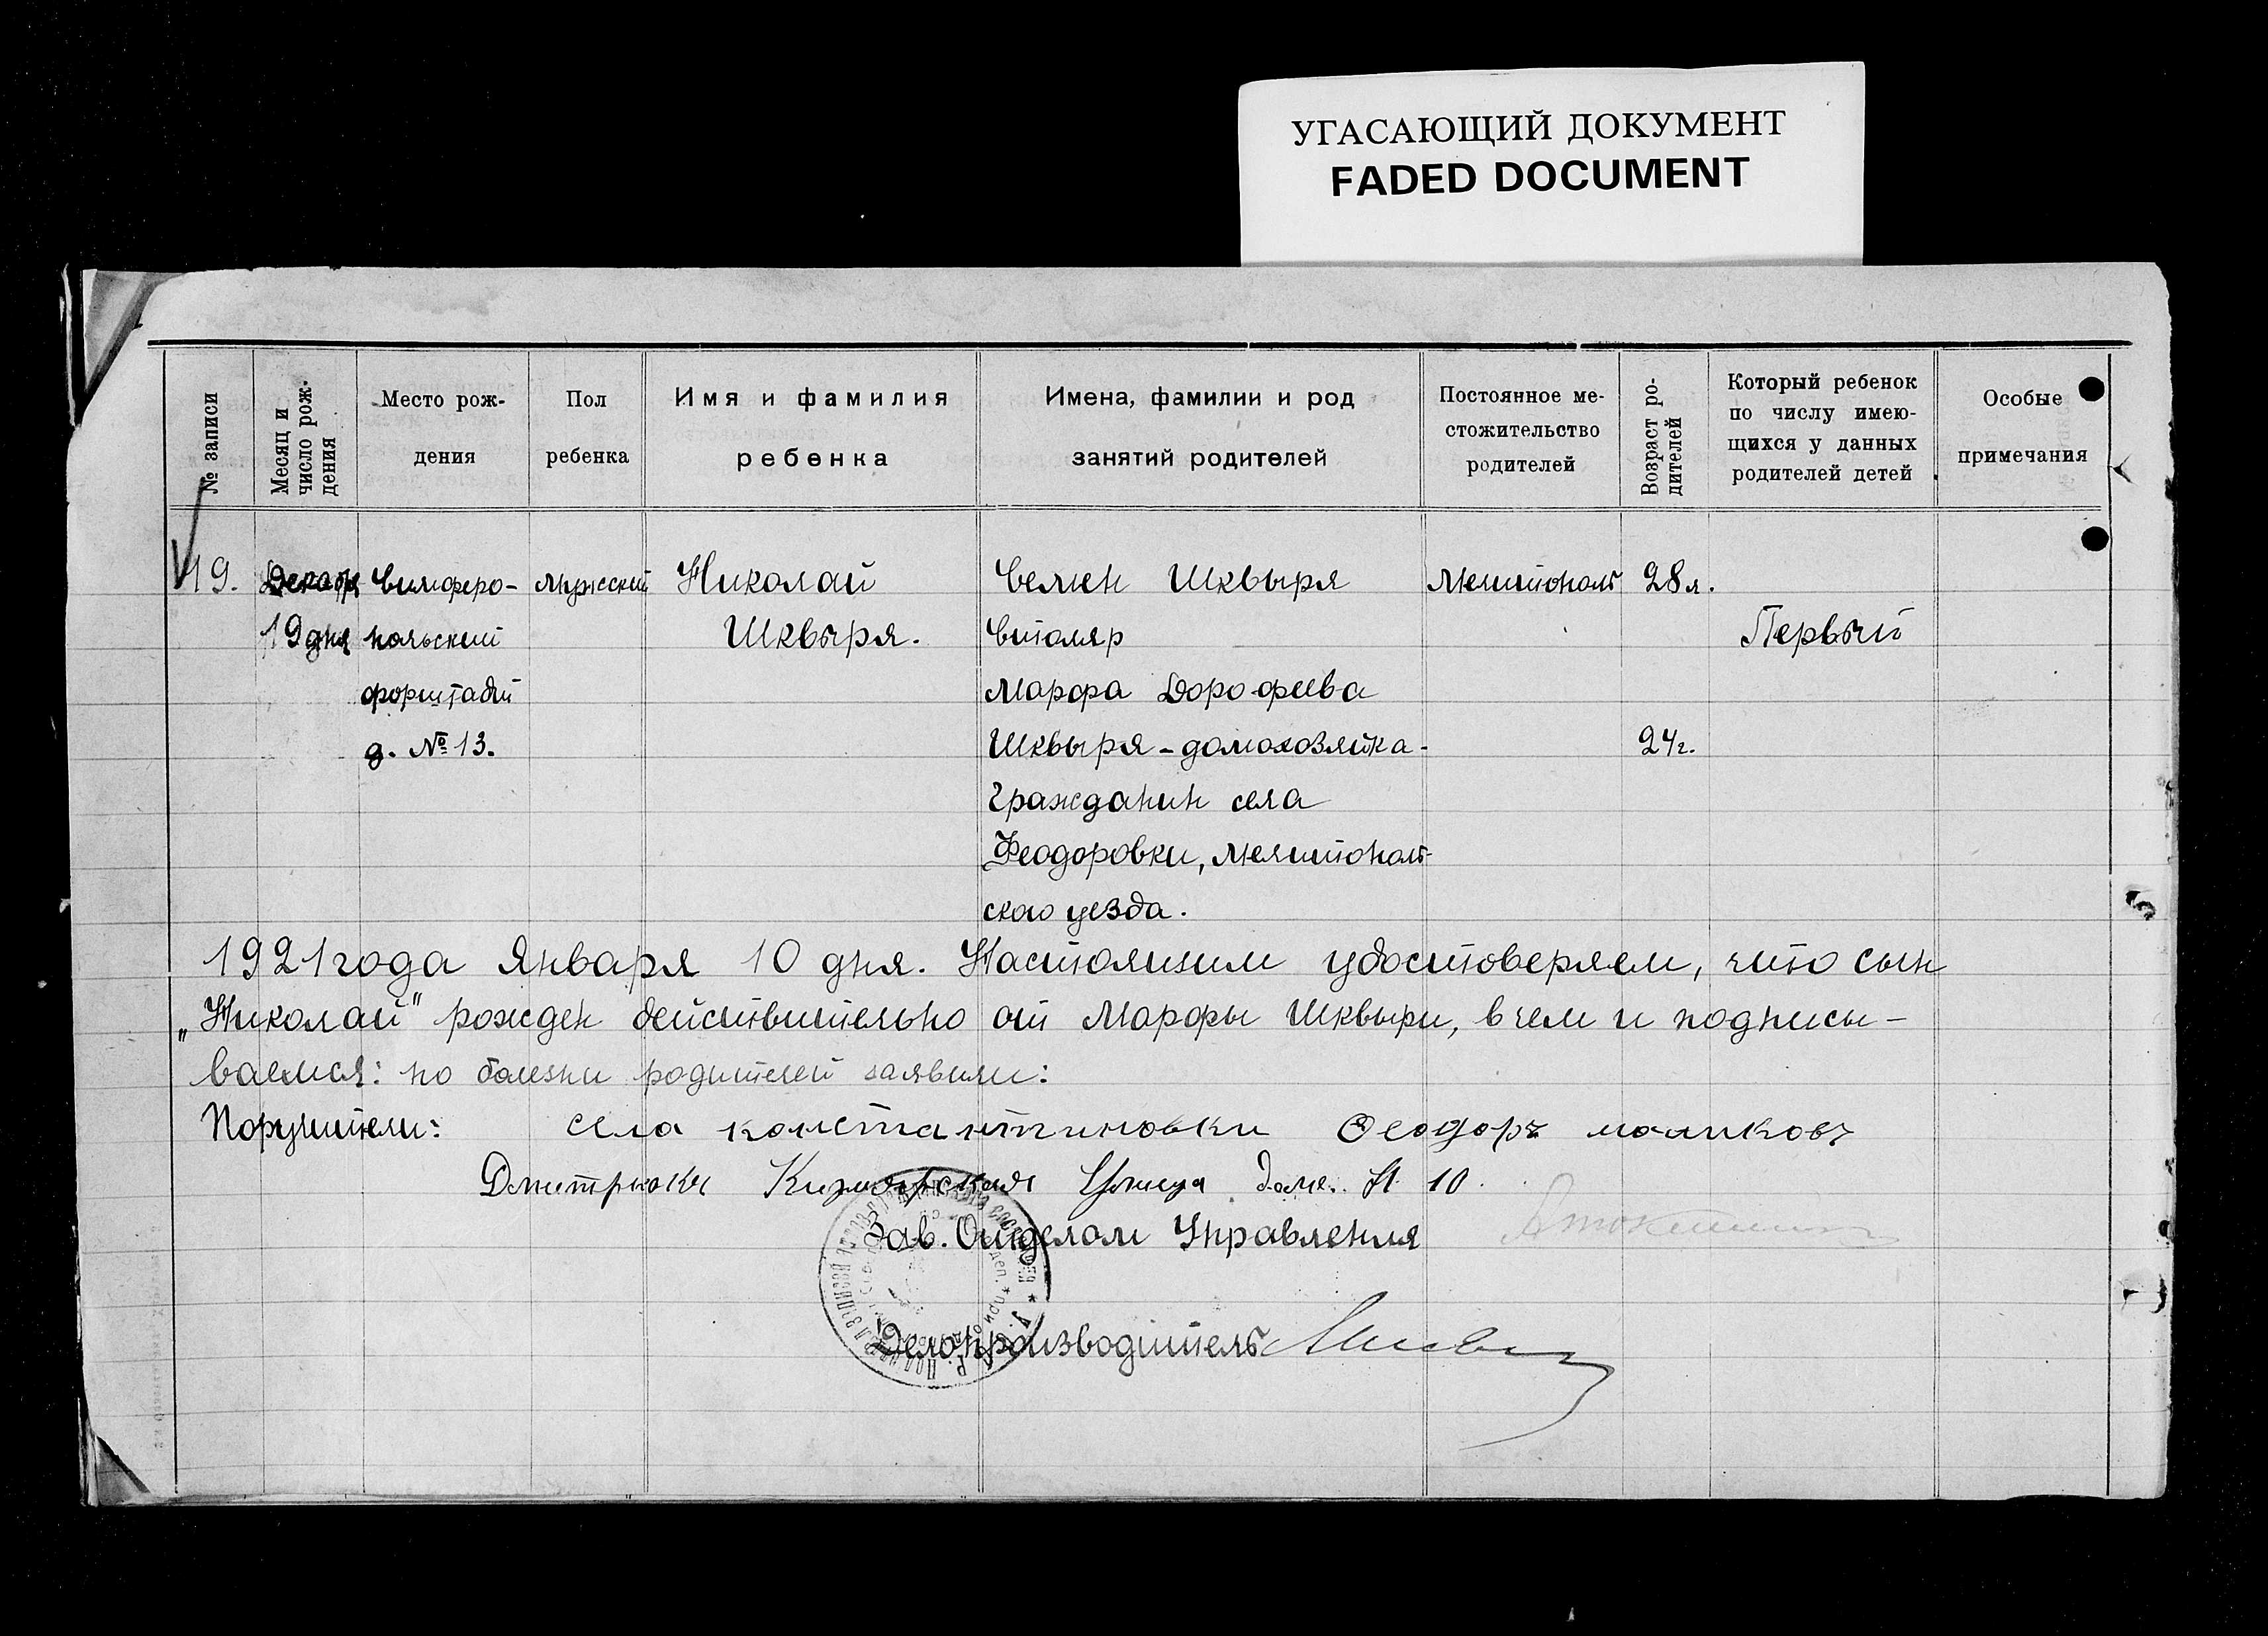 УГАСАЮЩИЙ ДОКУМЕНТ
FADED DOCUMENT
№ записи
Месяц и
число рож-
дения
Место рож-
дения
Пол
ребенка
Имя и фамилия
ребенка
Имена, фамилии и род
занятий родителей
Постоянное ме-
стожительство
родителей
Возраст ро-
дителей
Который ребенок
по числу имею-
щихся у данных
родителей детей
Особые
примечания
19. Декабря Симферо- мужеский Николай Семен Шквыря Мелитополь 28 л.
19 дня польский Шквыря. Столяр Первый
форштадт Марфа Дорофеева
д. № 13. Шквыря - домохозяйка - 24 г.
гражданин села
Феодоровки, Мелитополь-
ского уезда.
1921 года Января 10 дня. Настоящим удостоверяем, что сын
„Николай" рожден действительно от Марфы Шквыри, в чем и подписы-
ваемся: по болезни родителей заявили:
Поручители: села константиновки Феодоръ маликовъ
Улица дом. № 10.
Зав. Отделом Управления
Делопроизводитель